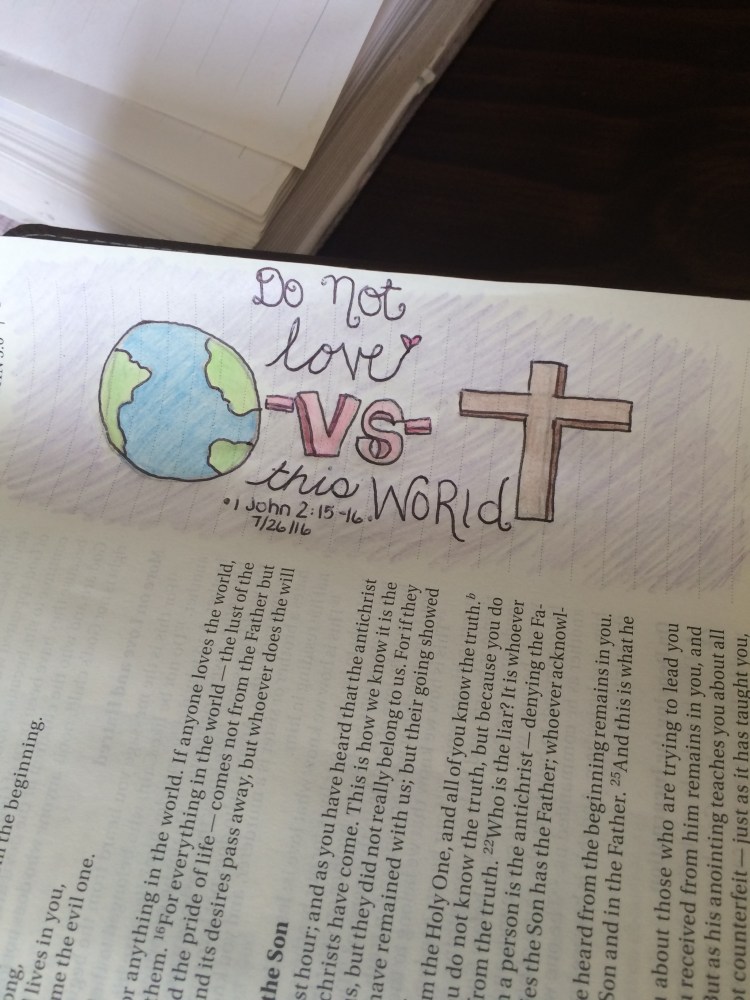 Do Not
love
-VS-
this WORld
•1 John 2:15-16.
7/26/16
the beginning.
ong,
lives in you,
me the evil one.
or anything in the world. If anyone loves the world,
them. 16For everything in the world — the lust of the
d the pride of life — comes not from the Father but
nd its desires pass away, but whoever does the will
the Son
st hour; and as you have heard that the antichrist
christs have come. This is how we know it is the
s, but they did not really belong to us. For if they
have remained with us; but their going showed
m the Holy One, and all of you know the truth.b
u do not know the truth, but because you do
rom the truth. 22Who is the liar? It is whoever
a person is the antichrist — denying the Fa-
es the Son has the Father; whoever acknowl-
e heard from the beginning remains in you.
Son and in the Father. 25And this is what he
about those who are trying to lead you
received from him remains in you, and
ut as his anointing teaches you about all
t counterfeit — just as it has taught you,